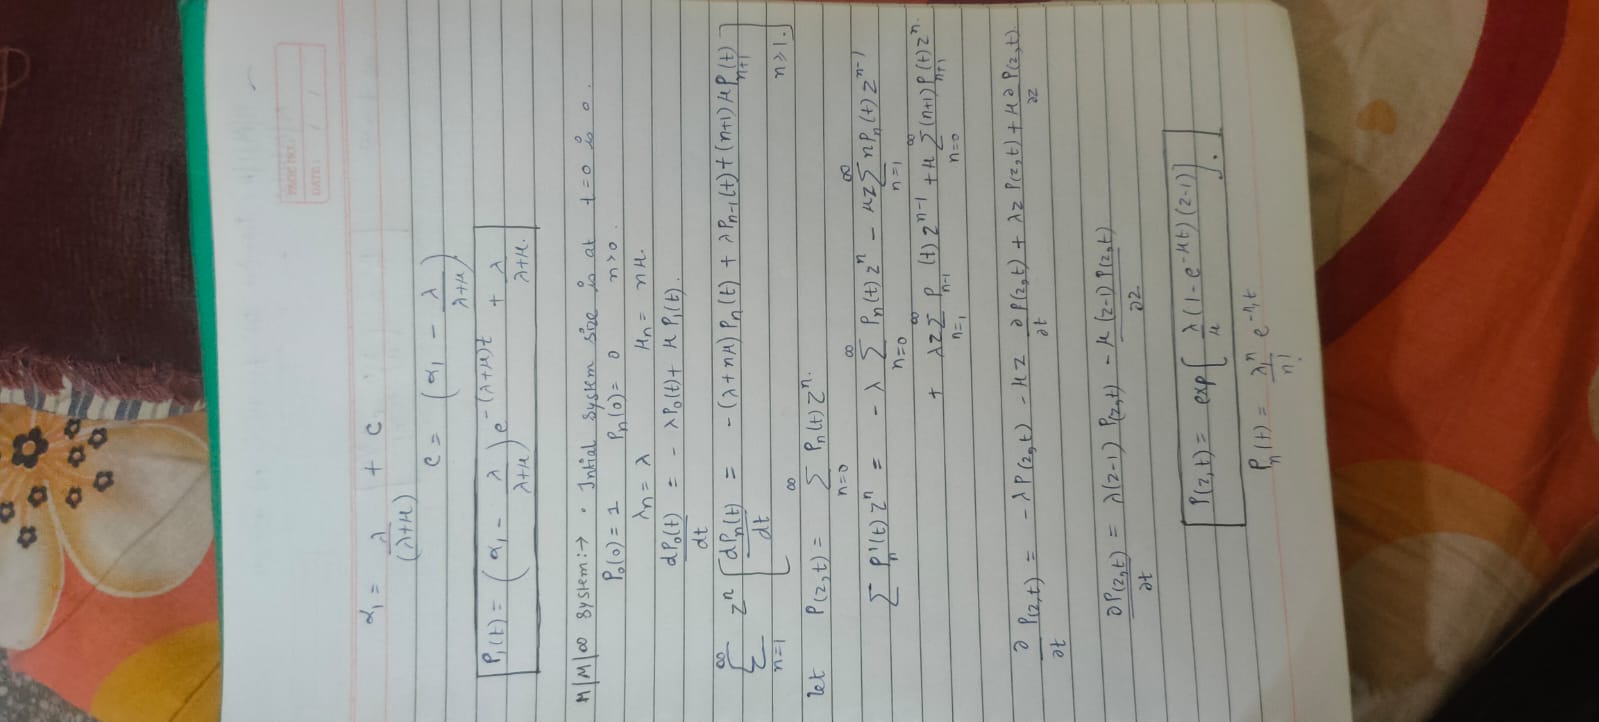 PAGE NO.
DATE: / /
α₁ = λ/(λ+μ) + c
c = (α₁ - λ/(λ+μ))
P₁(t) = (α₁ - λ/(λ+μ)) e^-(λ+μ)t + λ/(λ+μ).
M/M/∞ System:→ • Intial system size is at t=0 is 0.
P₀(0) = 1 Pₙ(0) = 0 n>0.
λₙ = λ μₙ = nμ.
dP₀(t)/dt = - λP₀(t) + μ P₁(t).
∑_{n=1}^∞ zⁿ [dPₙ(t)/dt = -(λ+nμ) Pₙ(t) + λPₙ₋₁(t) + (n+1) μ Pₙ₊₁(t) n≥1.]
let P(z,t) = ∑_{n=0}^∞ Pₙ(t) zⁿ.
∑ Pₙ'(t) zⁿ = -λ ∑_{n=0}^∞ Pₙ(t) zⁿ - μz ∑_{n=1}^∞ n Pₙ(t) zⁿ⁻¹
+ λz ∑_{n=1}^∞ Pₙ₋₁(t) zⁿ⁻¹ + μ ∑_{n=0}^∞ (n+1) Pₙ₊₁(t) zⁿ.
∂/∂t P(z,t) = -λP(z,t) - μz ∂P(z,t)/∂t + λz P(z,t) + μ ∂P(z,t)/∂z.
∂P(z,t)/∂t = λ(z-1) P(z,t) - μ(z-1) P(z,t)/∂z
P(z,t) = exp[λ/μ (1 - e^-μt) (z-1)].
Pₙ(t) = λ₁ⁿ/n!